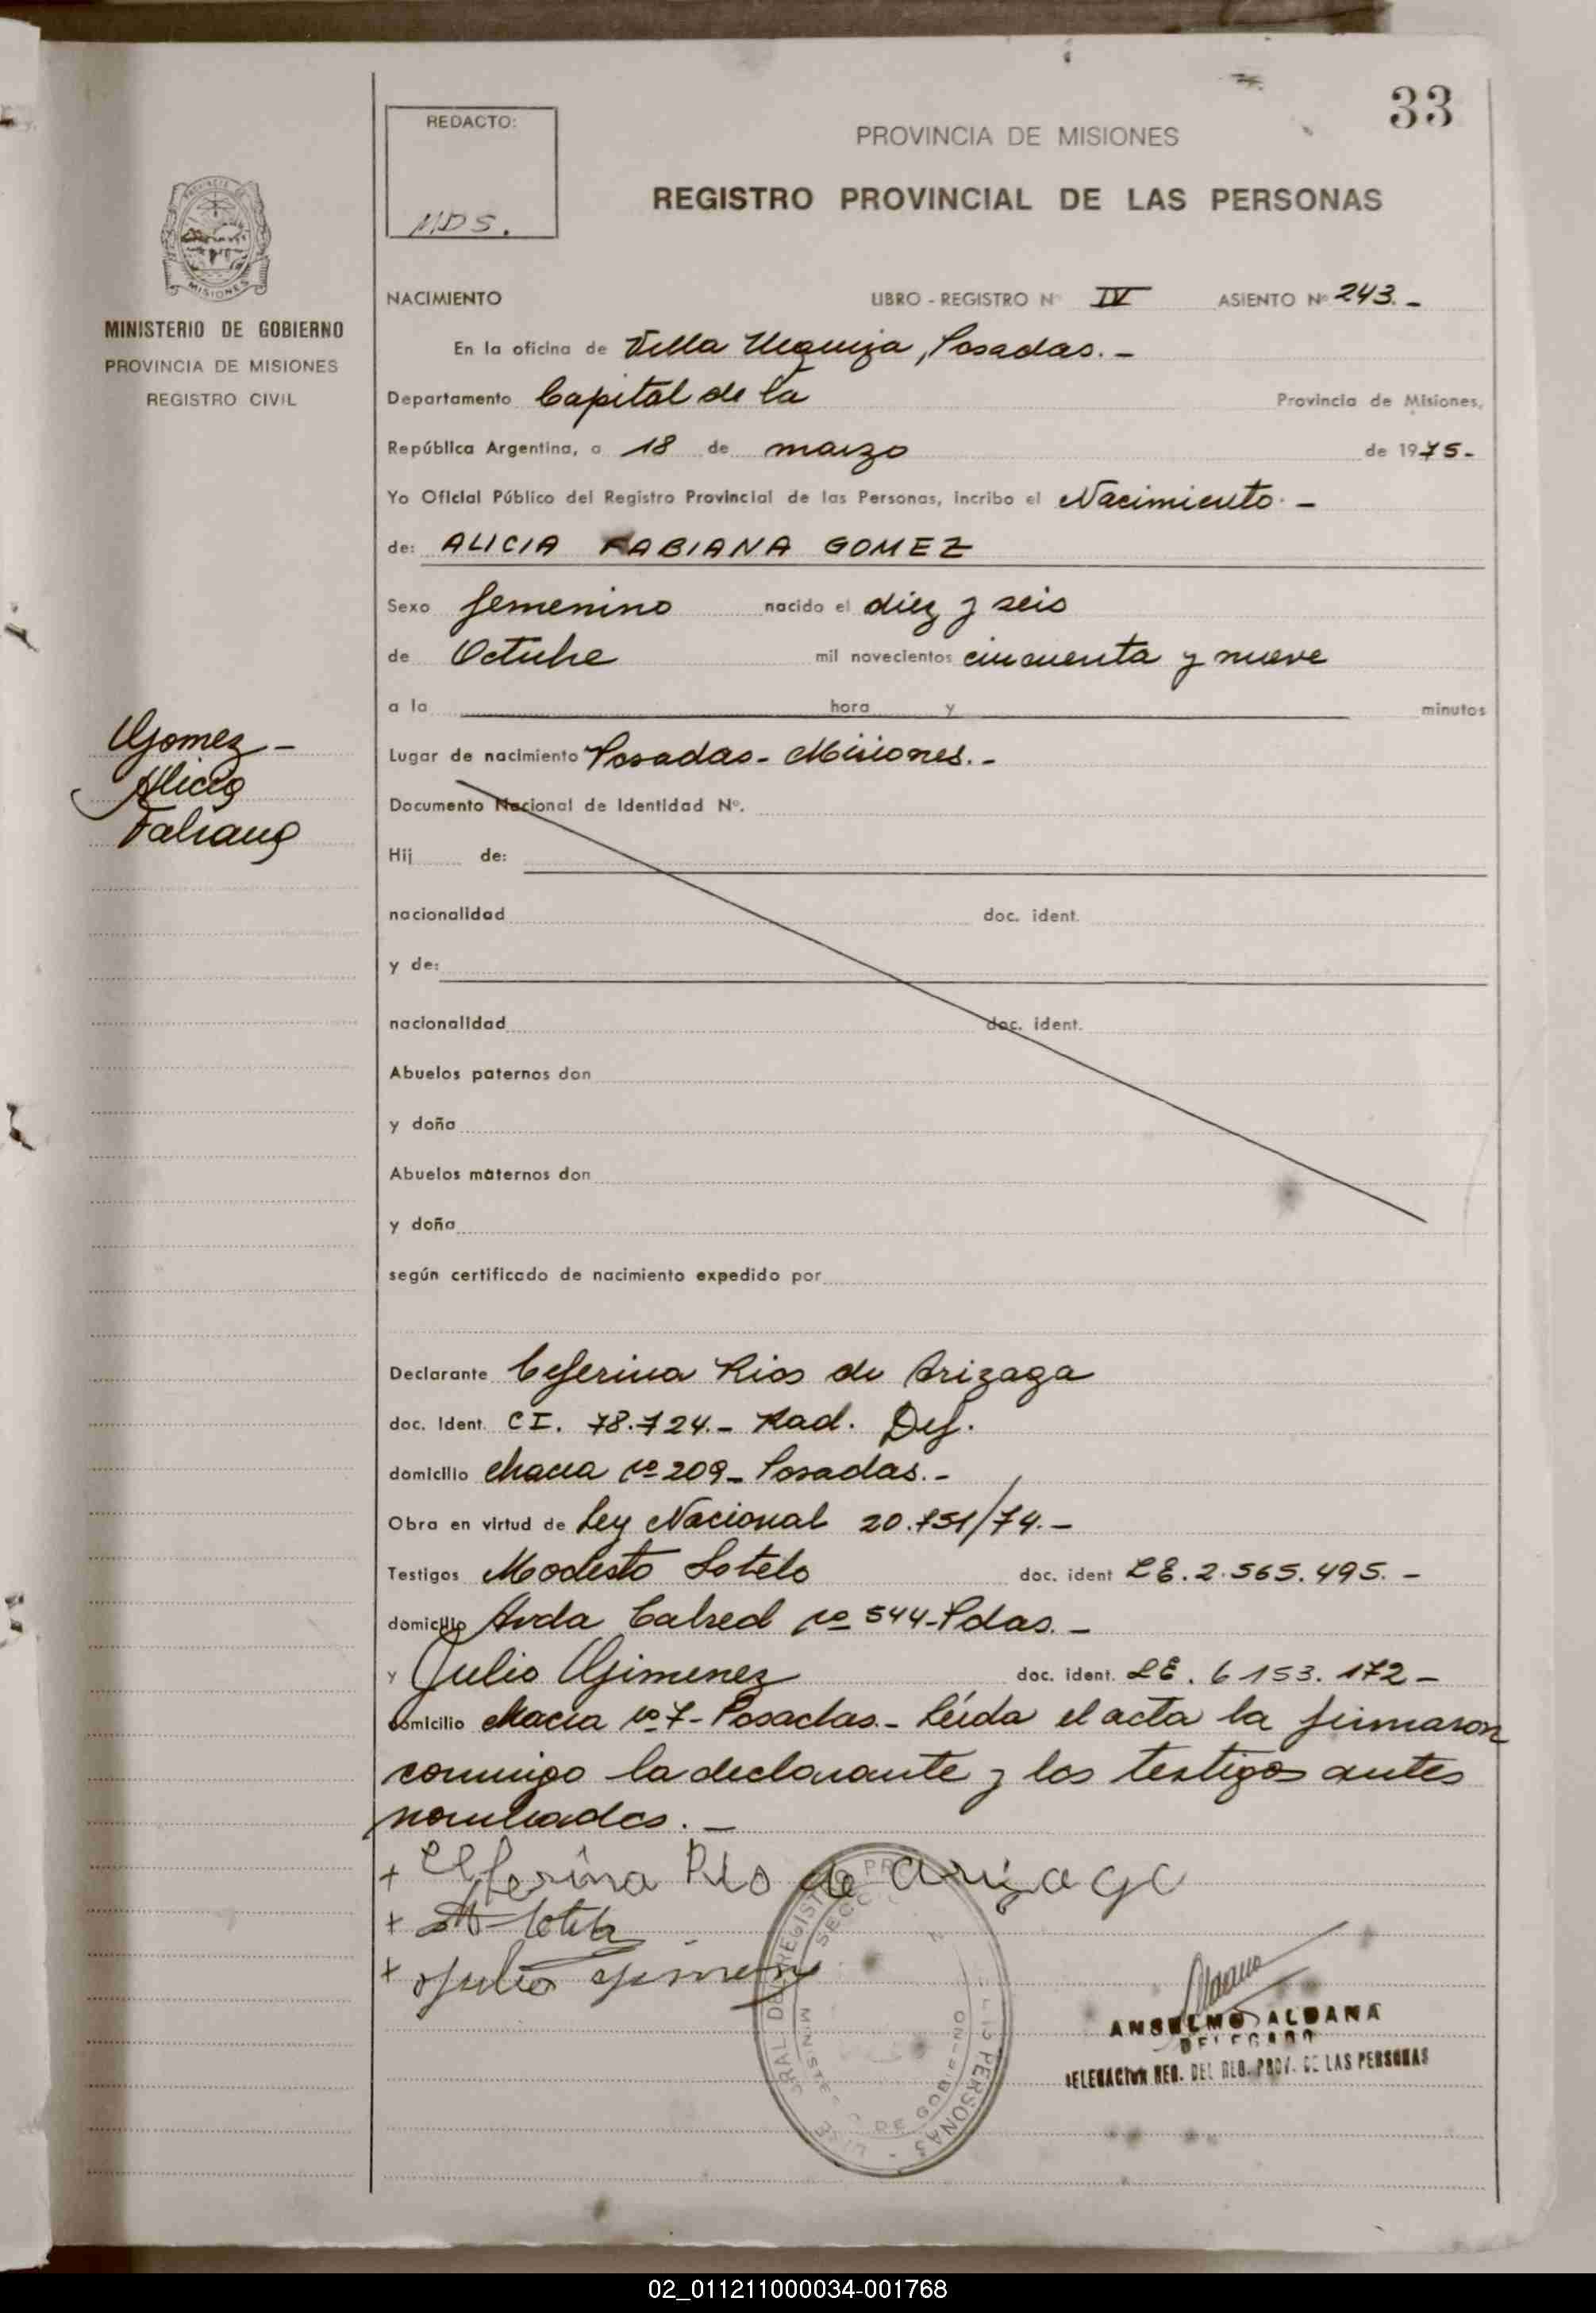 33
REDACTO:
MDS.
PROVINCIA DE MISIONES
REGISTRO PROVINCIAL DE LAS PERSONAS
MISIONES
MINISTERIO DE GOBIERNO
PROVINCIA DE MISIONES
REGISTRO CIVIL
NACIMIENTO LIBRO - REGISTRO Nº IV ASIENTO Nº 243.-
En la oficina de Villa Urquiza, Posadas.-
Departamento Capital de la Provincia de Misiones,
República Argentina, a 18 de marzo de 1975-
Yo Oficial Público del Registro Provincial de las Personas, incribo el Nacimiento.-
de: ALICIA FABIANA GOMEZ
Sexo femenino nacido el diez y seis
de Octubre mil novecientos cincuenta y nueve
a la hora y minutos
Gomez-
Alicia
Fabiana
Lugar de nacimiento Posadas- Misiones.-
Documento Nacional de Identidad Nº.
Hij de:
nacionalidad doc. ident.
y de:
nacionalidad doc. ident.
Abuelos paternos don
y doña
Abuelos maternos don
y doña
según certificado de nacimiento expedido por
Declarante Ceferina Rios de Arizaga
doc. Ident. CI. 78.724.- Rad. Def.
domicilio chacra nº 209- Posadas.-
Obra en virtud de Ley Nacional 20.751/74.-
Testigos Modesto Sotelo doc. ident LE. 2.565.495.-
domicilio Avda Cabred nº 544-Pdas.-
y Julio Gimenez doc. ident. LE. 6153.172-
domicilio chacra nº 7- Posadas.- Leída el acta la firmaron
conmigo la declarante y los testigos antes
nombrados.-
+ Ceferina Rio de Arizaga
+ Sotelo
+ Julio Gimenez
ANSELMO ALDANA
DELEGADO
DELEGACION REG. DEL REG. PROV. DE LAS PERSONAS
02_011211000034-001768